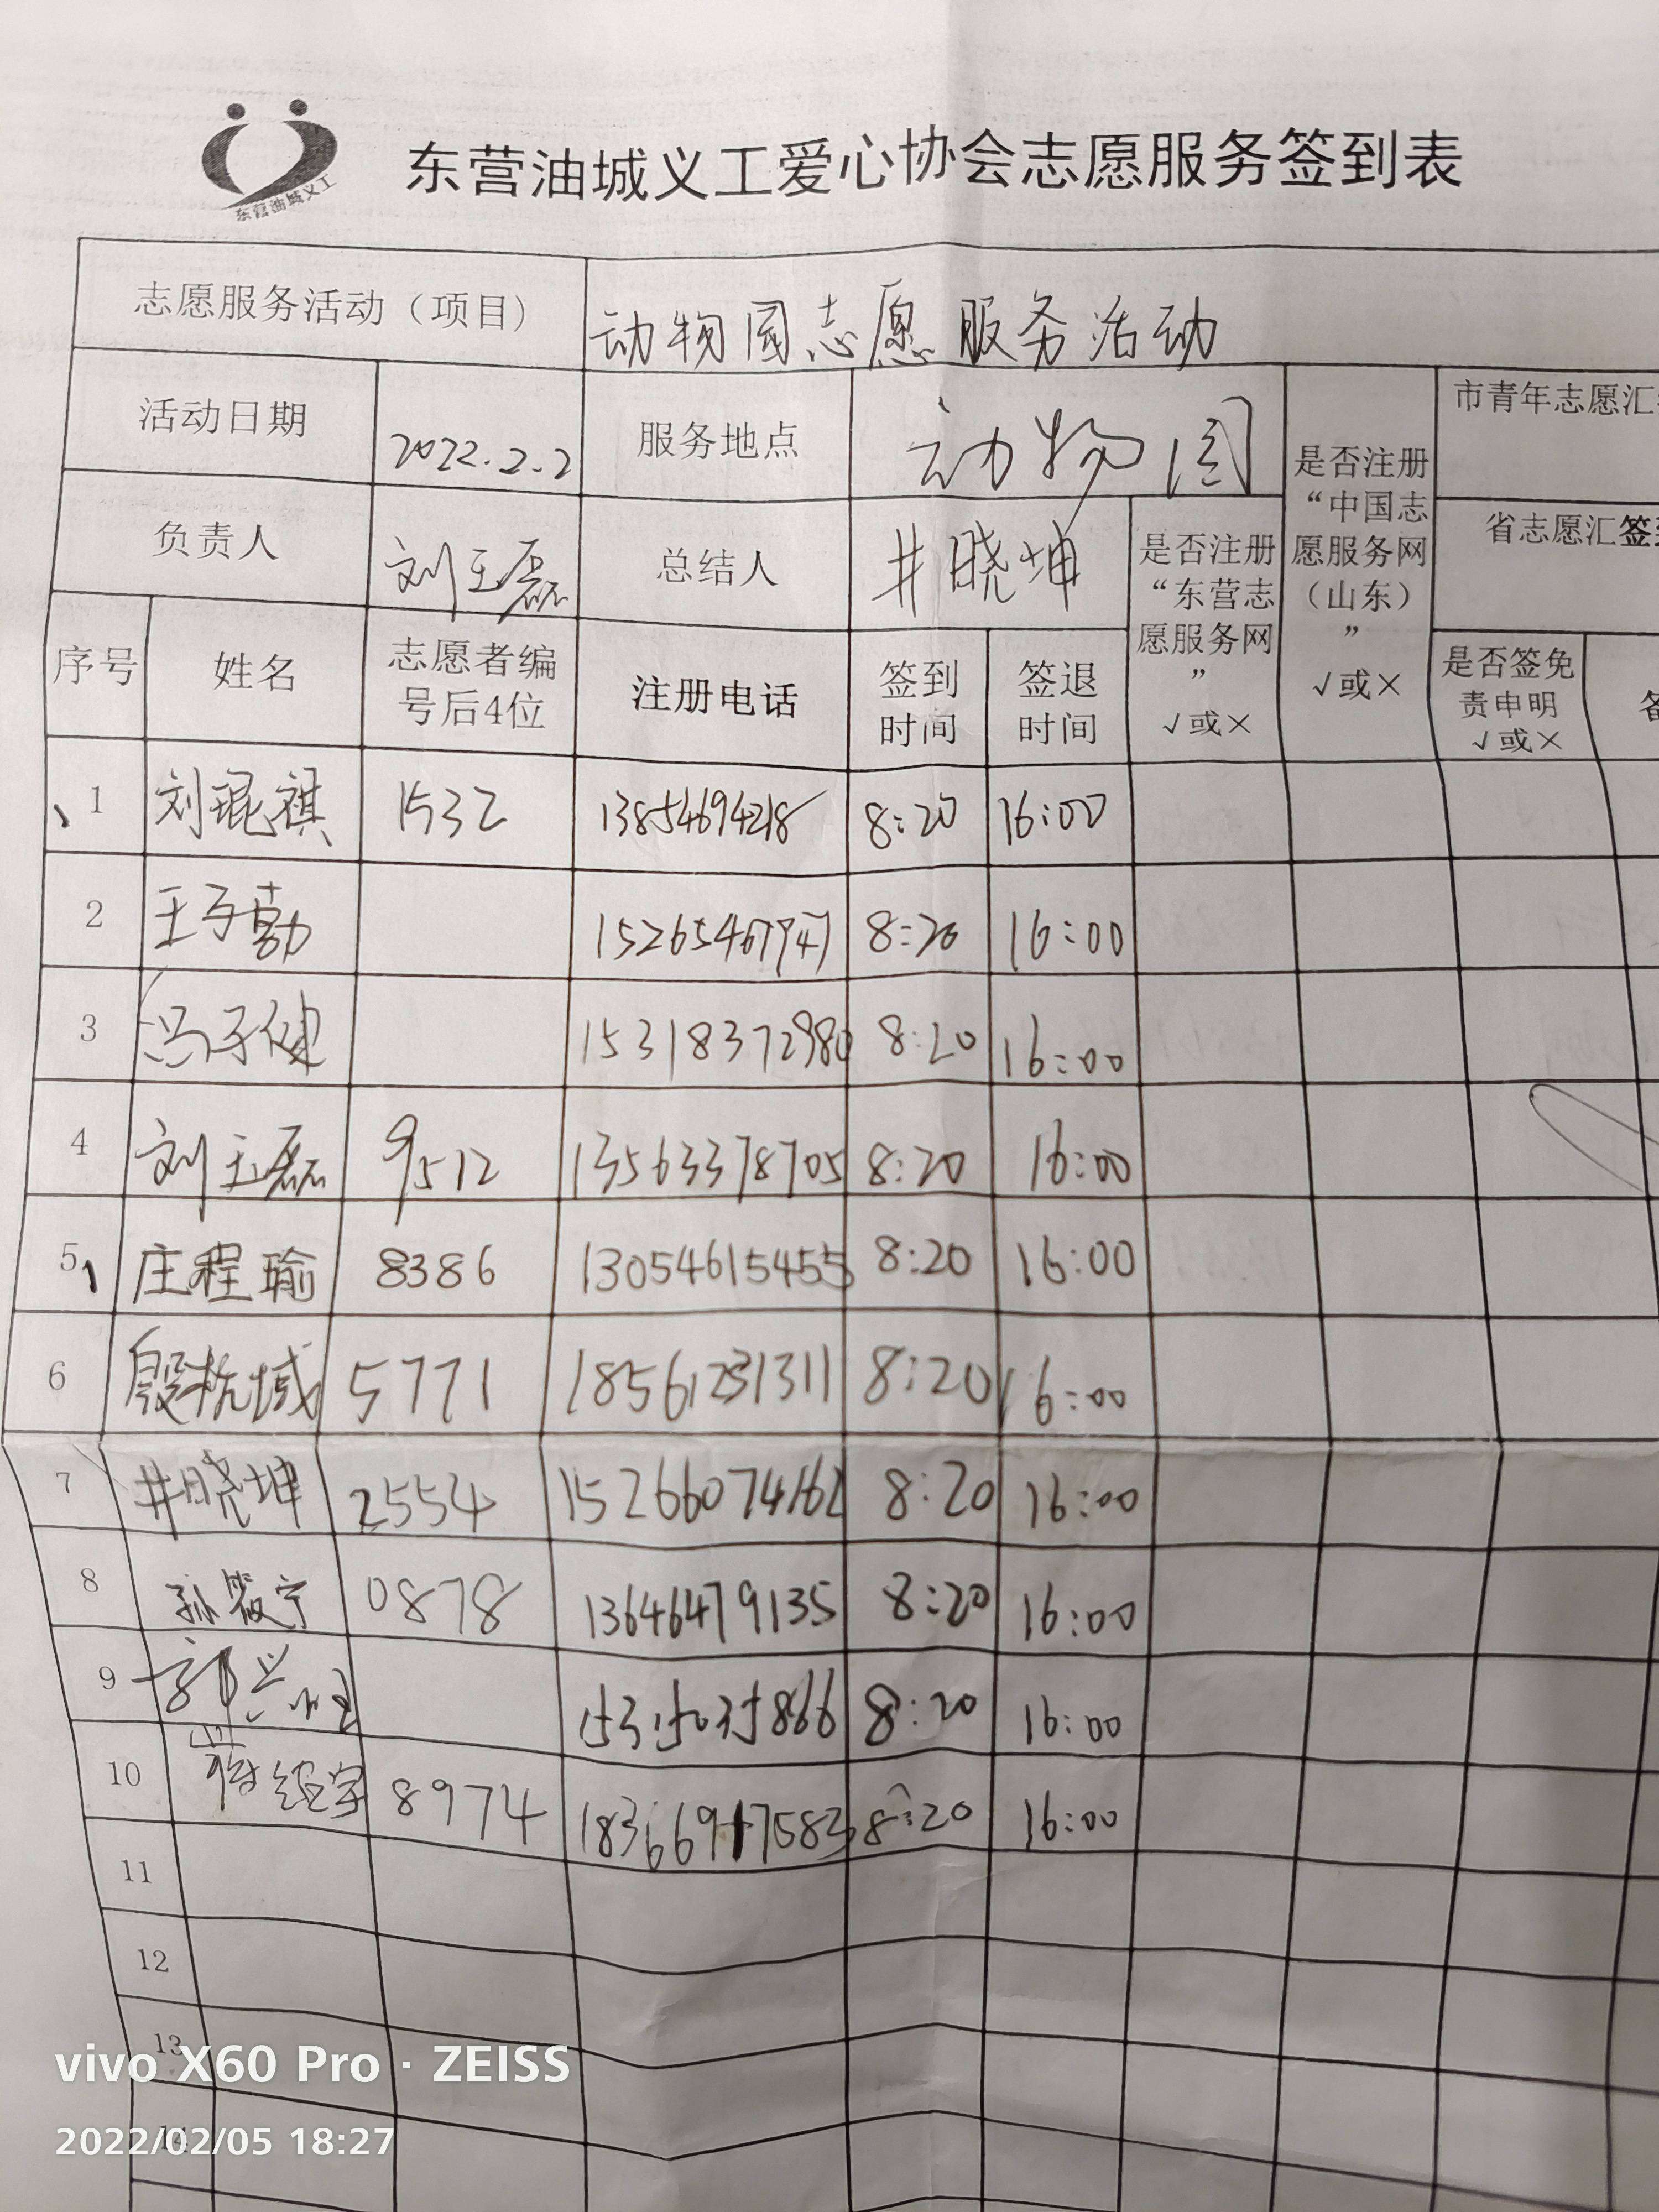 东营油城义工
东营油城义工爱心协会志愿服务签到表
志愿服务活动（项目） 动物园志愿服务活动
活动日期 2022.2.2 服务地点 动物园
负责人 刘玉磊 总结人 井晓坤
是否注册“东营志愿服务网” √或×
是否注册“中国志愿服务网（山东）” √或×
市青年志愿汇
省志愿汇签到
序号 姓名 志愿者编号后4位 注册电话 签到时间 签退时间 是否签免责申明 √或× 备
1 刘琨祺 1532 13854694218 8:20 16:00
2 王子勤 8:20 16:00
3 冯子健 15318372980 8:20 16:00
4 刘玉磊 9512 13563378705 8:20 16:00
5 庄程瑜 8386 13054615455 8:20 16:00
6 殷杭域 5771 18561231311 8:20 16:00
7 井晓坤 2554 15266074162 8:20 16:00
8 孙筱宁 0878 13646479135 8:20 16:00
9 8:20 16:00
10 8974 8:20 16:00
11
12
13
14
vivo X60 Pro · ZEISS
2022/02/05 18:27